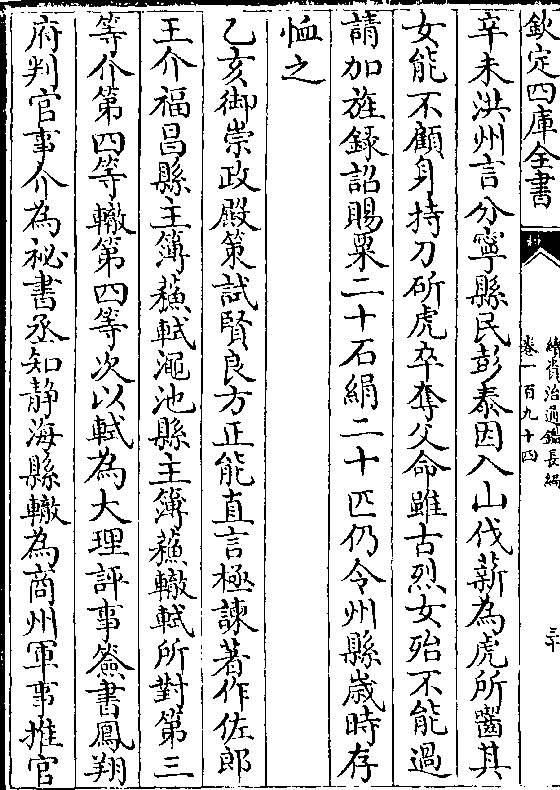 欽定四庫全書
續資治通鑑長編
卷一百九十四
三十
辛未洪州言分寧縣民彭泰因入山伐薪為虎所齧其
女能不顧身持刀斫虎卒奪父命雖古烈女殆不能過
請加旌録詔賜粟二十石絹二十匹仍令州縣歲時存
恤之
乙亥御崇政殿策試賢良方正能直言極諫著作佐郎
王介福昌縣主簿蘇軾澠池縣主簿蘇轍軾所對第三
等介第四等轍第四等次以軾為大理評事簽書鳳翔
府判官事介為祕書丞知静海縣轍為商州軍事推官